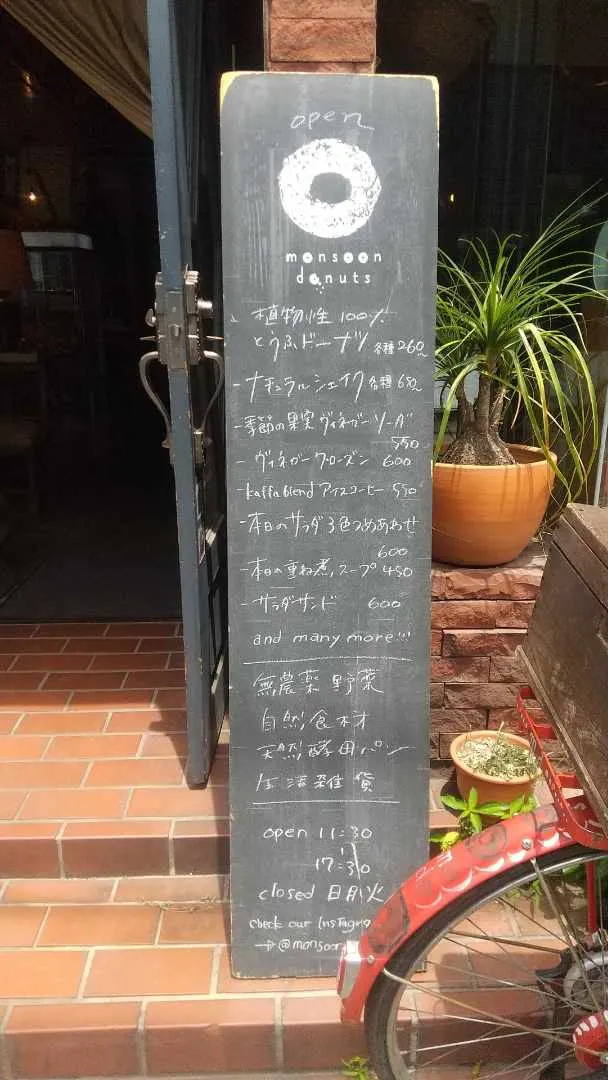 open
monsoon
donuts
植物性 100%
とうふドーナツ 各種 260~
-ナチュラルシェイク 各種 650~
-季節の果実 ヴィネガーソーダ
550
-ヴィネガークローズン 600
-kaffa blend アイスコーヒー 550
-本日のサラダ 3色つめあわせ
600
-本日の重ね煮スープ 450
-サラダサンド 600
and many more!!!
無農薬野菜
自然食材
天然酵母パン
生活雑貨
open 11:30
17:30
closed 日月火
Check our Instagra
→@monsoo